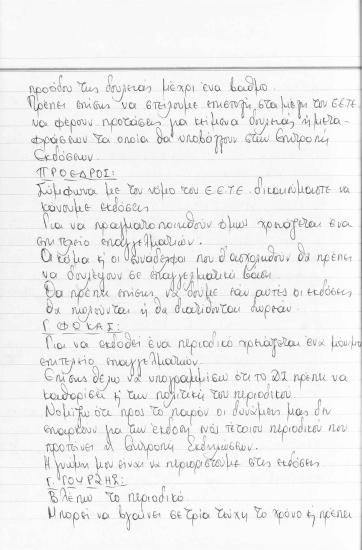 προόδου της δουλειάς μέχρι ένα βαθμο.
Πρέπει επίσης να στείλουμε επιστολή στα μέλη του Ε.Ε.Τ.Ε.
να φέρουν προτάσεις για κείμενα δουλειάς ή μετα-
φράσεων τα οποία θα υποβάλλουν στην Επιτροπή
Εκδόσεων.
ΠΡΟΕΔΡΟΣ:
Σύμφωνα με τον νόμο του Ε.Ε.Τ.Ε. δικαιούμαστε να
κάνουμε εκδόσεις.
Για να πραγματοποιηθούν όμως χρειάζεται ένα
επιτελείο επαγγελματιών.
Ακόμα κι οι συνάδελφοι που θ' ασχοληθουν θα πρέπει
να δουλέψουν σε επαγγελματική βαση.
Θα πρέπει επίσης να δούμε εάν αυτές οι εκδόσεις
θα πωλούνται ή θα διατίθονται δωρεάν.
Γ. ΦΩΚΑΣ:
Για να εκδοθεί ένα περιοδικό χρειάζεται ένα μόνιμο
επιτελείο επαγγελματιών.
Επίσης θέλω να υπογραμμίσω ότι το ΔΣ πρέπει να
καθορίσει κ' την πολιτική του περιοδικού.
Νομίζω ότι προς το παρόν οι δυνάμεις μας δεν
επαρκούν για την έκδοση ενός τέτοιου περιοδικού που
προτείνει η Επιτροπή Εκδηλώσεων.
Η γνώμη μου είναι να περιοριστούμε στις εκδόσεις.
Γ. ΓΟΥΡΖΗΣ:
Βλέπω το περιοδικό.
Μπορεί να βγαίνει σε τρία τεύχη το χρόνο κι πρέπει